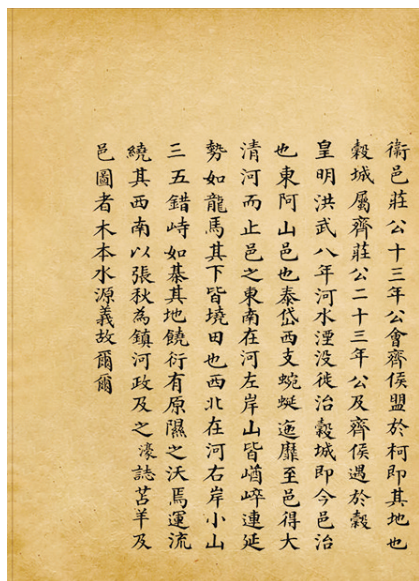 衞邑莊公十三年公會齊侯盟於柯即其地也
穀城屬齊莊公二十三年公及齊侯遇於穀
皇明洪武八年河水湮没徙治穀城即今邑治
也東阿山邑也泰岱西支蜿蜒迤靡至邑得大
清河而止邑之東南在河左岸山皆崷崪連延
勢如龍馬其下皆境田也西北在河右岸小山
三五錯峙如棊其地饒衍有原隰之沃焉運流
繞其西南以張秋為鎮河政及之濠誌苫羊及
邑圖者木本水源義故爾爾